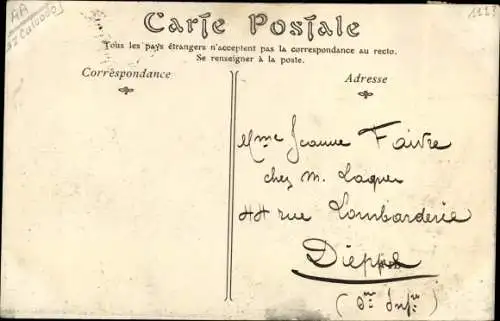 4A
CALVADOS
1123
Carte Postale
Tous les pays étrangers n'acceptent pas la correspondance au recto.
Se renseigner à la poste.
Correspondance
Adresse
Mme Jeanne Faivre
chez M. Laquer
44 rue Lombarderie
Dieppe
(Sne Infre)